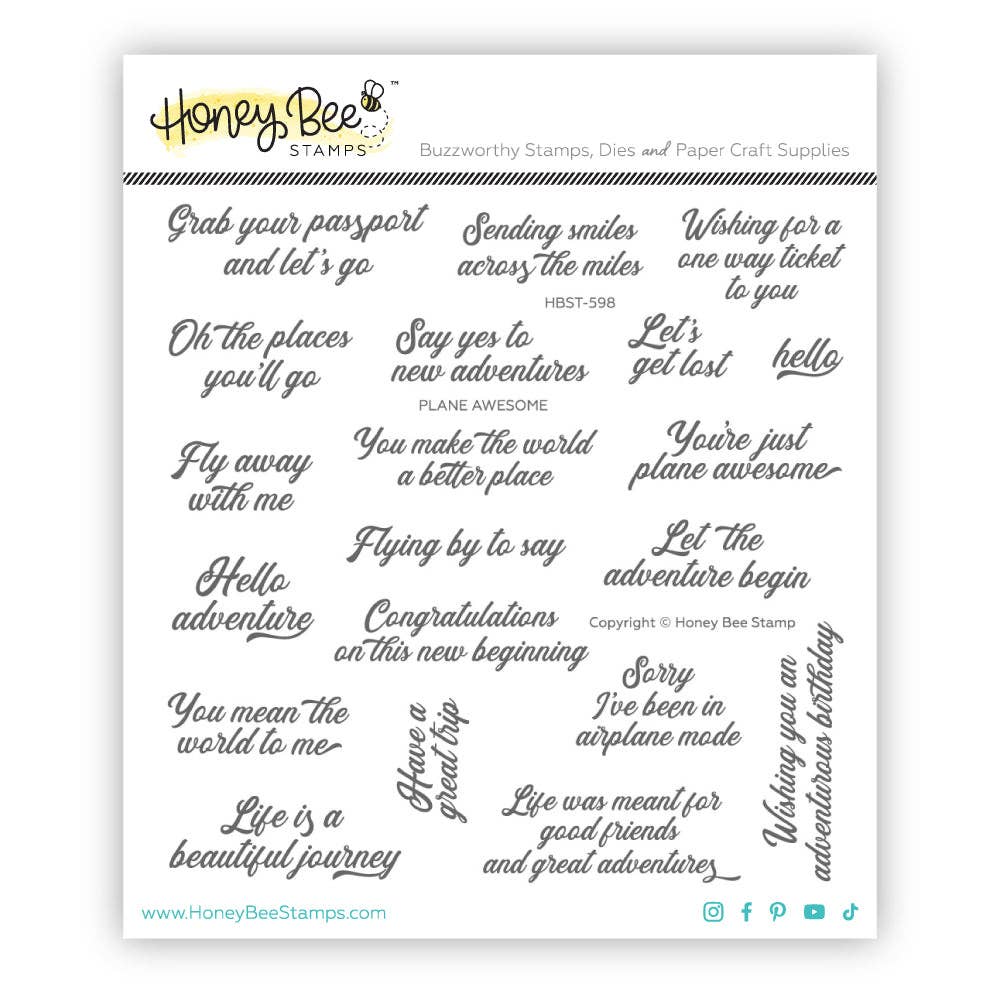 Honey Bee™
STAMPS
Buzzworthy Stamps, Dies and Paper Craft Supplies
Grab your passport
and let's go
Sending smiles
across the miles
Wishing for a
one way ticket
to you
HBST-598
Oh the places
you'll go
Say yes to
new adventures
Let's
get lost
hello
PLANE AWESOME
Fly away
with me
You make the world
a better place
You're just
plane awesome
Flying by to say
Let the
adventure begin
Hello
adventure
Congratulations
on this new beginning
Copyright © Honey Bee Stamp
You mean the
world to me
Have a
great trip
Sorry
I've been in
airplane mode
Wishing you an
adventurous birthday
Life is a
beautiful journey
Life was meant for
good friends
and great adventures
www.HoneyBeeStamps.com